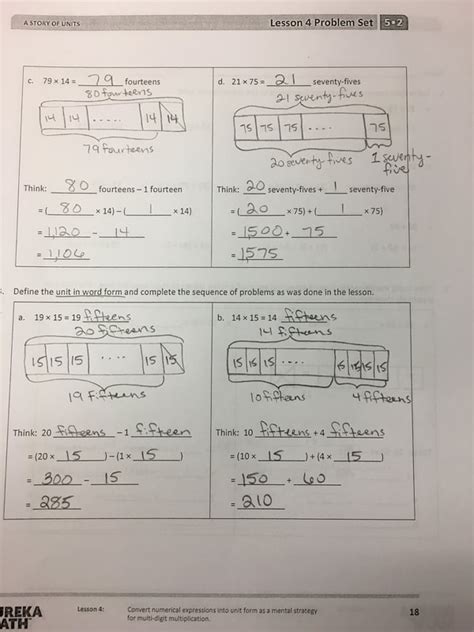 A STORY OF UNITS
Lesson 4 Problem Set 5•2
c. 79 × 14 = 79 fourteens
80 fourteens
14 14 ..... 14 14
79 fourteens
Think: 80 fourteens – 1 fourteen
= ( 80 × 14) – ( 1 × 14)
= 1,120 - 14
= 1,106
d. 21 × 75 = 21 seventy-fives
21 seventy-fives
75 75 75 .... 75
20 seventy fives 1 seventy-five
Think: 20 seventy-fives + 1 seventy-five
= ( 20 × 75) + ( 1 × 75)
= 1500 + 75
= 1575
Define the unit in word form and complete the sequence of problems as was done in the lesson.
a. 19 × 15 = 19 fifteens
20 fifteens
15 15 15 .... 15 15
19 fifteens
Think: 20 fifteens – 1 fifteen
= (20 × 15 ) – (1 × 15 )
= 300 - 15
= 285
b. 14 × 15 = 14 fifteens
14 fifteens
15 15 15 .... 15 15 15 15
10 fifteens 4 fifteens
Think: 10 fifteens + 4 fifteens
= (10 × 15 ) + (4 × 15 )
= 150 + 60
= 210
UREKA
ATH
Lesson 4: Convert numerical expressions into unit form as a mental strategy
for multi-digit multiplication.
18